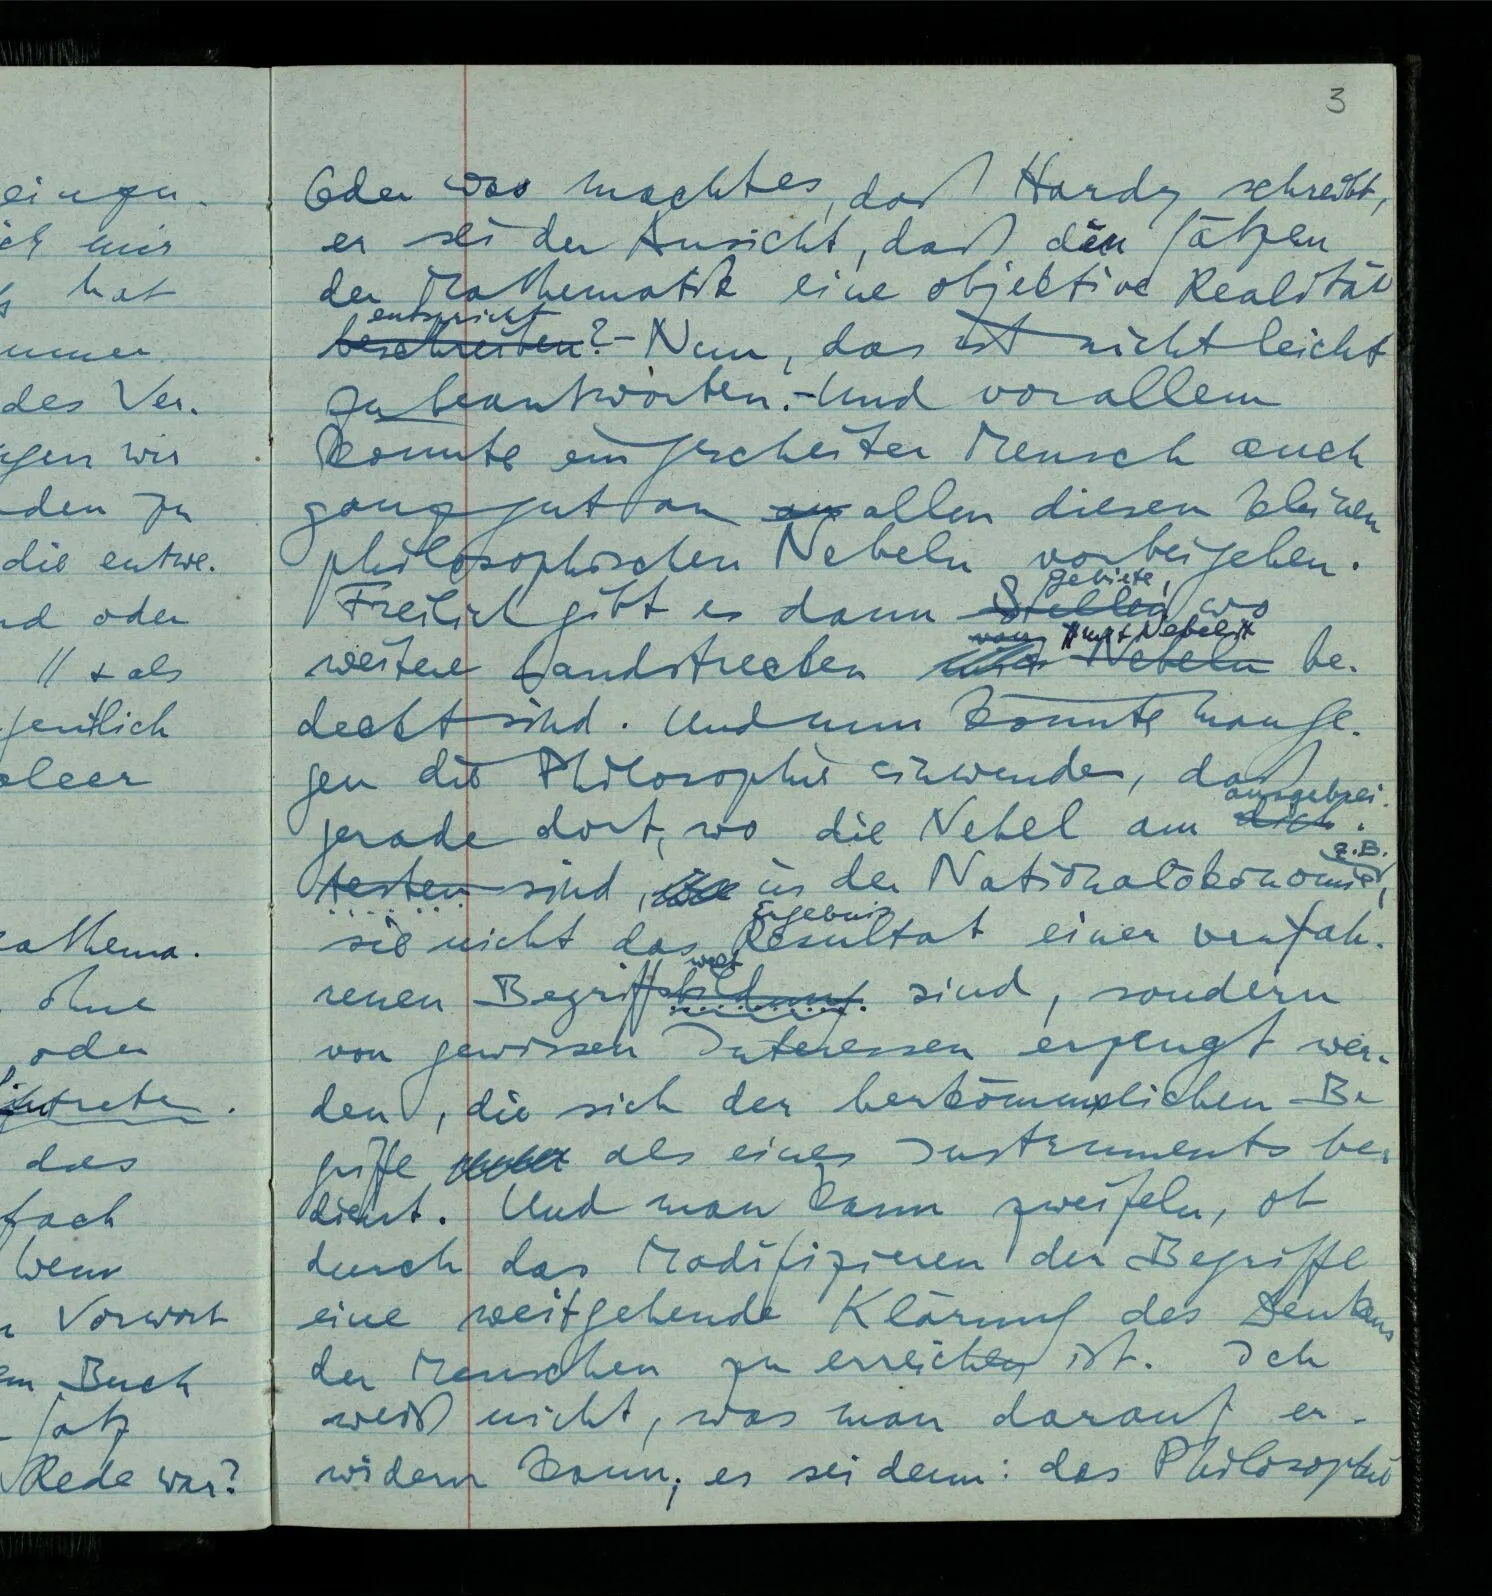 3
eingen.
ich mir
hat
immer
des Ver.
igen wir
nden zu
die entwe.
nd oder
// + als
gentlich
oleer
mathema.
ohne
oder
eintreten.
das
fach
wenn
n Vorwort
em Buch
Satz
Rede war?
Oder was macht es, daß Hardy schreibt,
er sei der Ansicht, daß den Sätzen
der Mathematik eine objektive Realität
entspricht
beschreiben?– Nun, das ist nicht leicht
zu beantworten.– Und vor allem
könnte ein gescheiter Mensch auch
ganz gut an an allen diesen kleinen
philosophischen Nebeln vorbeigehen.
gebiete,
Freilich gibt es dann Stellen wo
von mit Nebel
weitere Landstrecken Nebeln be-
deckt sind. Und nun könnte man ge-
gen die Philosophie einwenden, daß
ausgebrei-
gerade dort, wo die Nebel am dich-
z.B.
testen sind, in der Nationalökonomie,
Ergebnis
sie nicht das Resultat einer verfah-
welt
renen Begriffsbildung sind, sondern
von gewissen Interessen erzeugt wer-
den, die sich der herkömmlichen Be
griffe als eines Instruments be-
dient. Und man kann zweifeln, ob
durch das Modifizieren der Begriffe
eine weitgehende Klärung des Denkens
der Menschen zu erreichen ist. Ich
weiß nicht, was man darauf er-
widern kann; es sei denn: das Philosophie